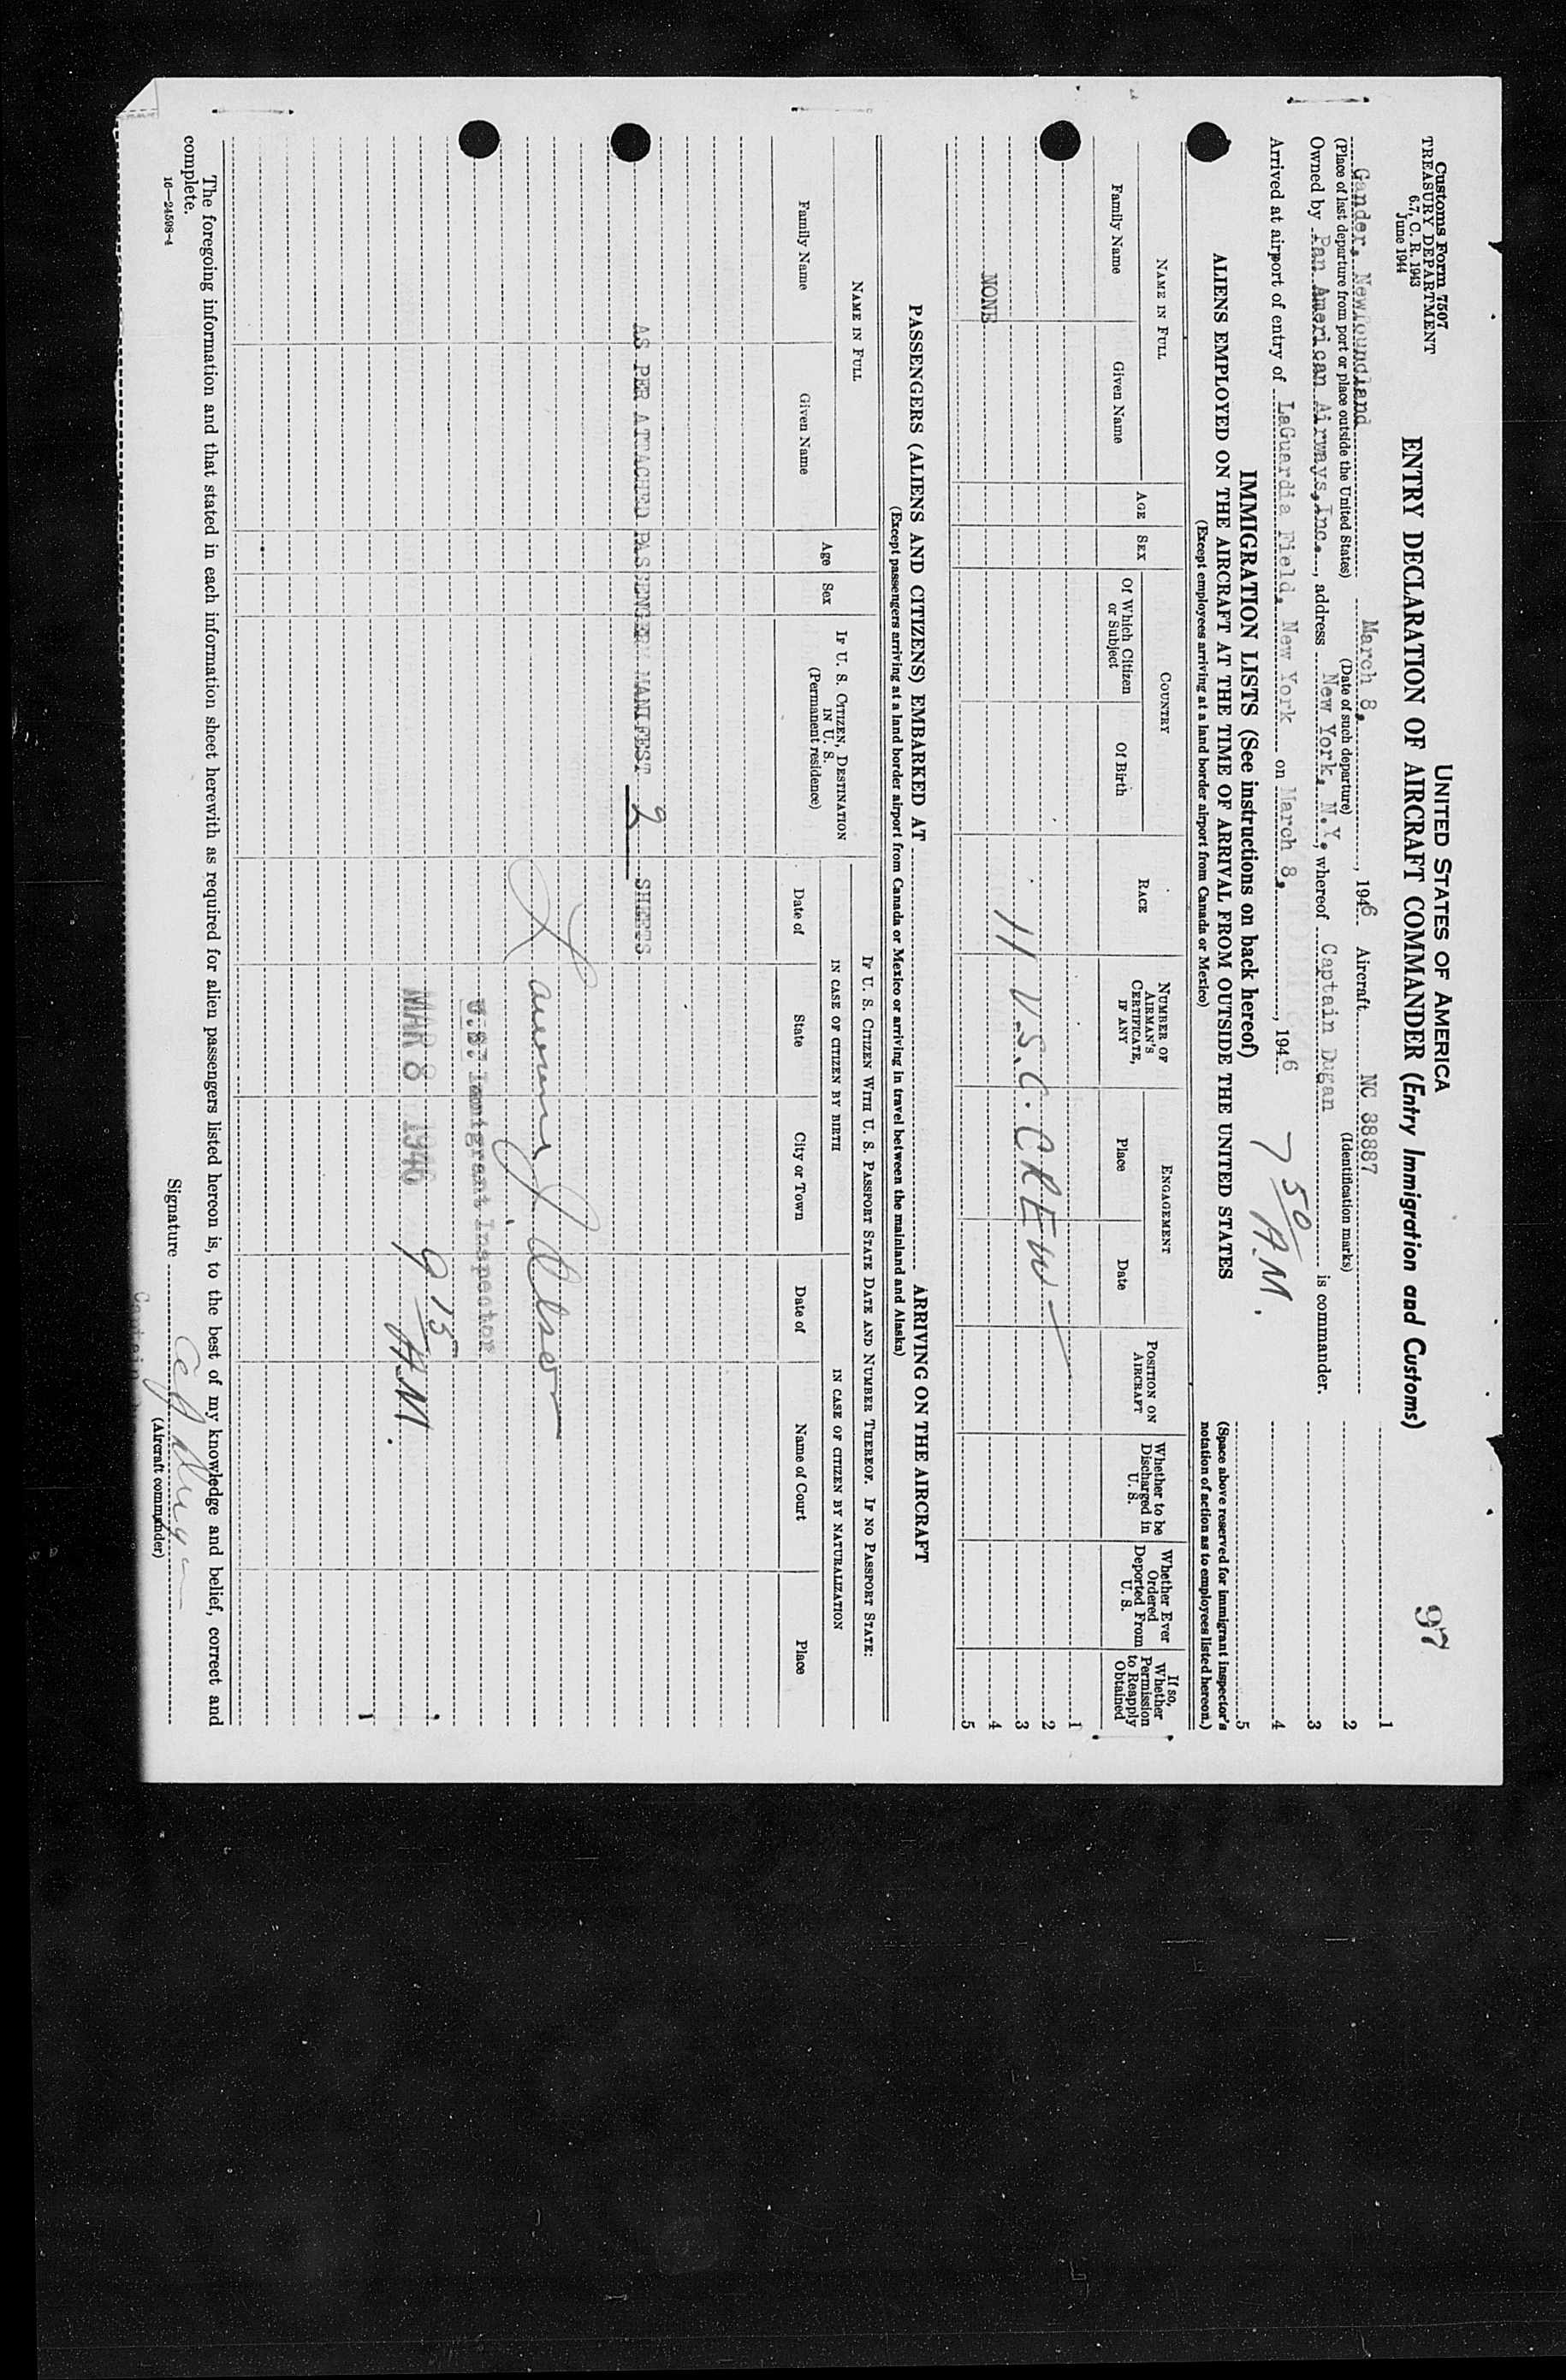 Customs Form 7507
TREASURY DEPARTMENT
6.7, C. R. 1943
June 1944
97
UNITED STATES OF AMERICA
ENTRY DECLARATION OF AIRCRAFT COMMANDER (Entry Immigration and Customs)
Gander, Newfoundland March 8, , 1946 Aircraft NC 88887
(Place of last departure from port or place outside the United States) (Date of such departure) (Identification marks)
Owned by Pan American Airways, Inc. , address New York, N.Y. , whereof Captain Dugan is commander.
Arrived at airport of entry of LaGuardia Field, New York on March 8, , 1946 7 50/ A.M.
1
2
3
4
5
(Space above reserved for immigrant inspector's notation of action as to employees listed hereon.)
IMMIGRATION LISTS (See instructions on back hereof)
ALIENS EMPLOYED ON THE AIRCRAFT AT THE TIME OF ARRIVAL FROM OUTSIDE THE UNITED STATES
(Except employees arriving at a land border airport from Canada or Mexico)
NAME IN FULL
Family Name Given Name
AGE
SEX
COUNTRY
Of Which Citizen or Subject Of Birth
RACE
NUMBER OF AIRMAN'S CERTIFICATE, IF ANY
ENGAGEMENT
Place Date
POSITION ON AIRCRAFT
Whether to be Discharged in U. S.
Whether Ever Ordered Deported From U. S.
If so, Whether Permission to Reapply Obtained
1
2
3
4
5
NONE
11 U.S.C. CREW
PASSENGERS (ALIENS AND CITIZENS) EMBARKED AT ARRIVING ON THE AIRCRAFT
(Except passengers arriving at a land border airport from Canada or Mexico or arriving in travel between the mainland and Alaska)
NAME IN FULL
Family Name Given Name
Age
Sex
IF U. S. CITIZEN, DESTINATION IN U. S.
(Permanent residence)
IF U. S. CITIZEN WITH U. S. PASSPORT STATE DATE AND NUMBER THEREOF. IF NO PASSPORT STATE:
IN CASE OF CITIZEN BY BIRTH IN CASE OF CITIZEN BY NATURALIZATION
Date of State City or Town Date of Name of Court Place
AS PER ATTACHED PASSENGER MANIFEST 2 SHEETS
U.S. Immigrant Inspector
MAR 8 1946 9 15/ A.M.
The foregoing information and that stated in each information sheet herewith as required for alien passengers listed hereon is, to the best of my knowledge and belief, correct and
complete.
Signature
16—24508-4
(Aircraft commander)